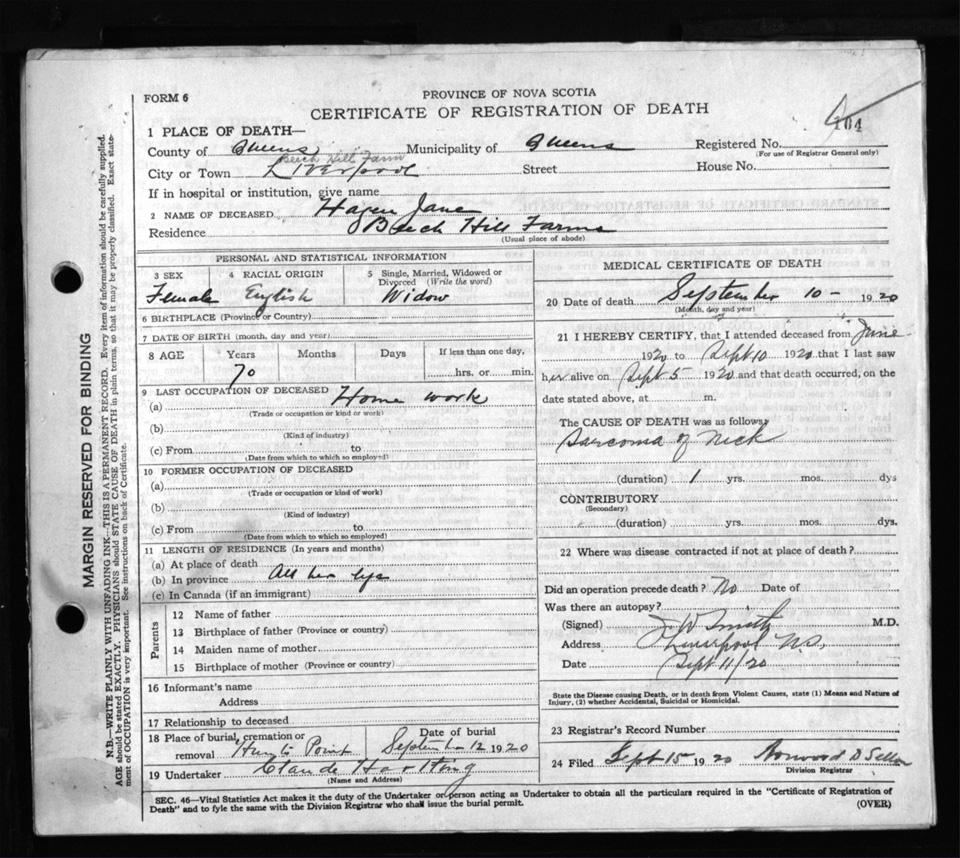 PROVINCE OF NOVA SCOTIA
FORM 6
CERTIFICATE OF REGISTRATION OF DEATH
104
1 PLACE OF DEATH—
County of Queens Municipality of Queens Registered No.
(For use of Registrar General only)
Beech Hill Farm
City or Town Liverpool Street House No.
If in hospital or institution, give name
2 NAME OF DECEASED Hagen Jane
Residence Beech Hill Farms
(Usual place of abode)
PERSONAL AND STATISTICAL INFORMATION
3 SEX 4 RACIAL ORIGIN 5 Single, Married, Widowed or
Divorced (Write the word)
Female English Widow
6 BIRTHPLACE (Province or Country)
7 DATE OF BIRTH (month, day and year)
8 AGE Years Months Days If less than one day,
70 hrs. or min.
9 LAST OCCUPATION OF DECEASED Home work
(a)
(Trade or occupation or kind or work)
(b)
(Kind of industry)
(c) From to
(Date from which to which so employed)
10 FORMER OCCUPATION OF DECEASED
(a)
(Trade or occupation or kind of work)
(b)
(Kind of industry)
(c) From to
(Date from which to which so employed)
11 LENGTH OF RESIDENCE (In years and months)
(a) At place of death
(b) In province All her life
(c) In Canada (if an immigrant)
Parents
12 Name of father
13 Birthplace of father (Province or country)
14 Maiden name of mother
15 Birthplace of mother (Province or country)
16 Informant's name
Address
17 Relationship to deceased
18 Place of burial, cremation or Date of burial
removal Hunts Point September 12 1920
19 Undertaker Claude Hartling
(Name and Address)
MEDICAL CERTIFICATE OF DEATH
20 Date of death September 10 – 1920
(Month, day and year)
21 I HEREBY CERTIFY, that I attended deceased from June
1920 to Sept 10 1920 that I last saw
her alive on Sept 5 1920 and that death occurred, on the
date stated above, at m.
The CAUSE OF DEATH was as follows:
Sarcoma of Neck
(duration) 1 yrs. mos. dys
CONTRIBUTORY
(Secondary)
(duration) yrs. mos. dys.
22 Where was disease contracted if not at place of death?
Did an operation precede death? No Date of
Was there an autopsy?
(Signed) J W Smith M.D.
Address Liverpool NS.
Date Sept 11/20
State the Disease causing Death, or in death from Violent Causes, state (1) Means and Nature of
Injury, (2) whether Accidental, Suicidal or Homicidal.
23 Registrar's Record Number
24 Filed Sept 15 1920 D
Division Registrar
SEC. 46—Vital Statistics Act makes it the duty of the Undertaker or person acting as Undertaker to obtain all the particulars required in the "Certificate of Registration of
Death" and to fyle the same with the Division Registrar who shall issue the burial permit.
(OVER)
MARGIN RESERVED FOR BINDING
N.B.—WRITE PLAINLY WITH UNFADING INK—THIS IS A PERMANENT RECORD. Every item of information should be carefully supplied.
AGE should be stated EXACTLY. PHYSICIANS should STATE CAUSE OF DEATH in plain terms, so that it may be properly classified. Exact state-
ment of OCCUPATION is very important. See instructions on back of Certificate.